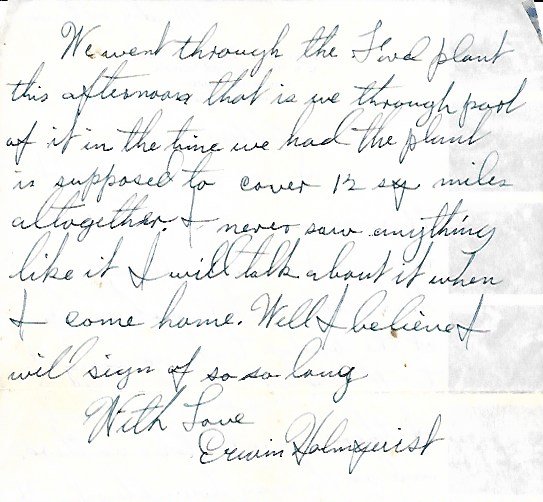 We went through the Ford plant
this afternoon that is we through part
of it in the time we had the plant
is supposed to cover 12 sq miles
altogether. I never saw anything
like it I will talk about it when
I come home. Well I believe I
will sign of so so long
With Love
Erwin Holmquist